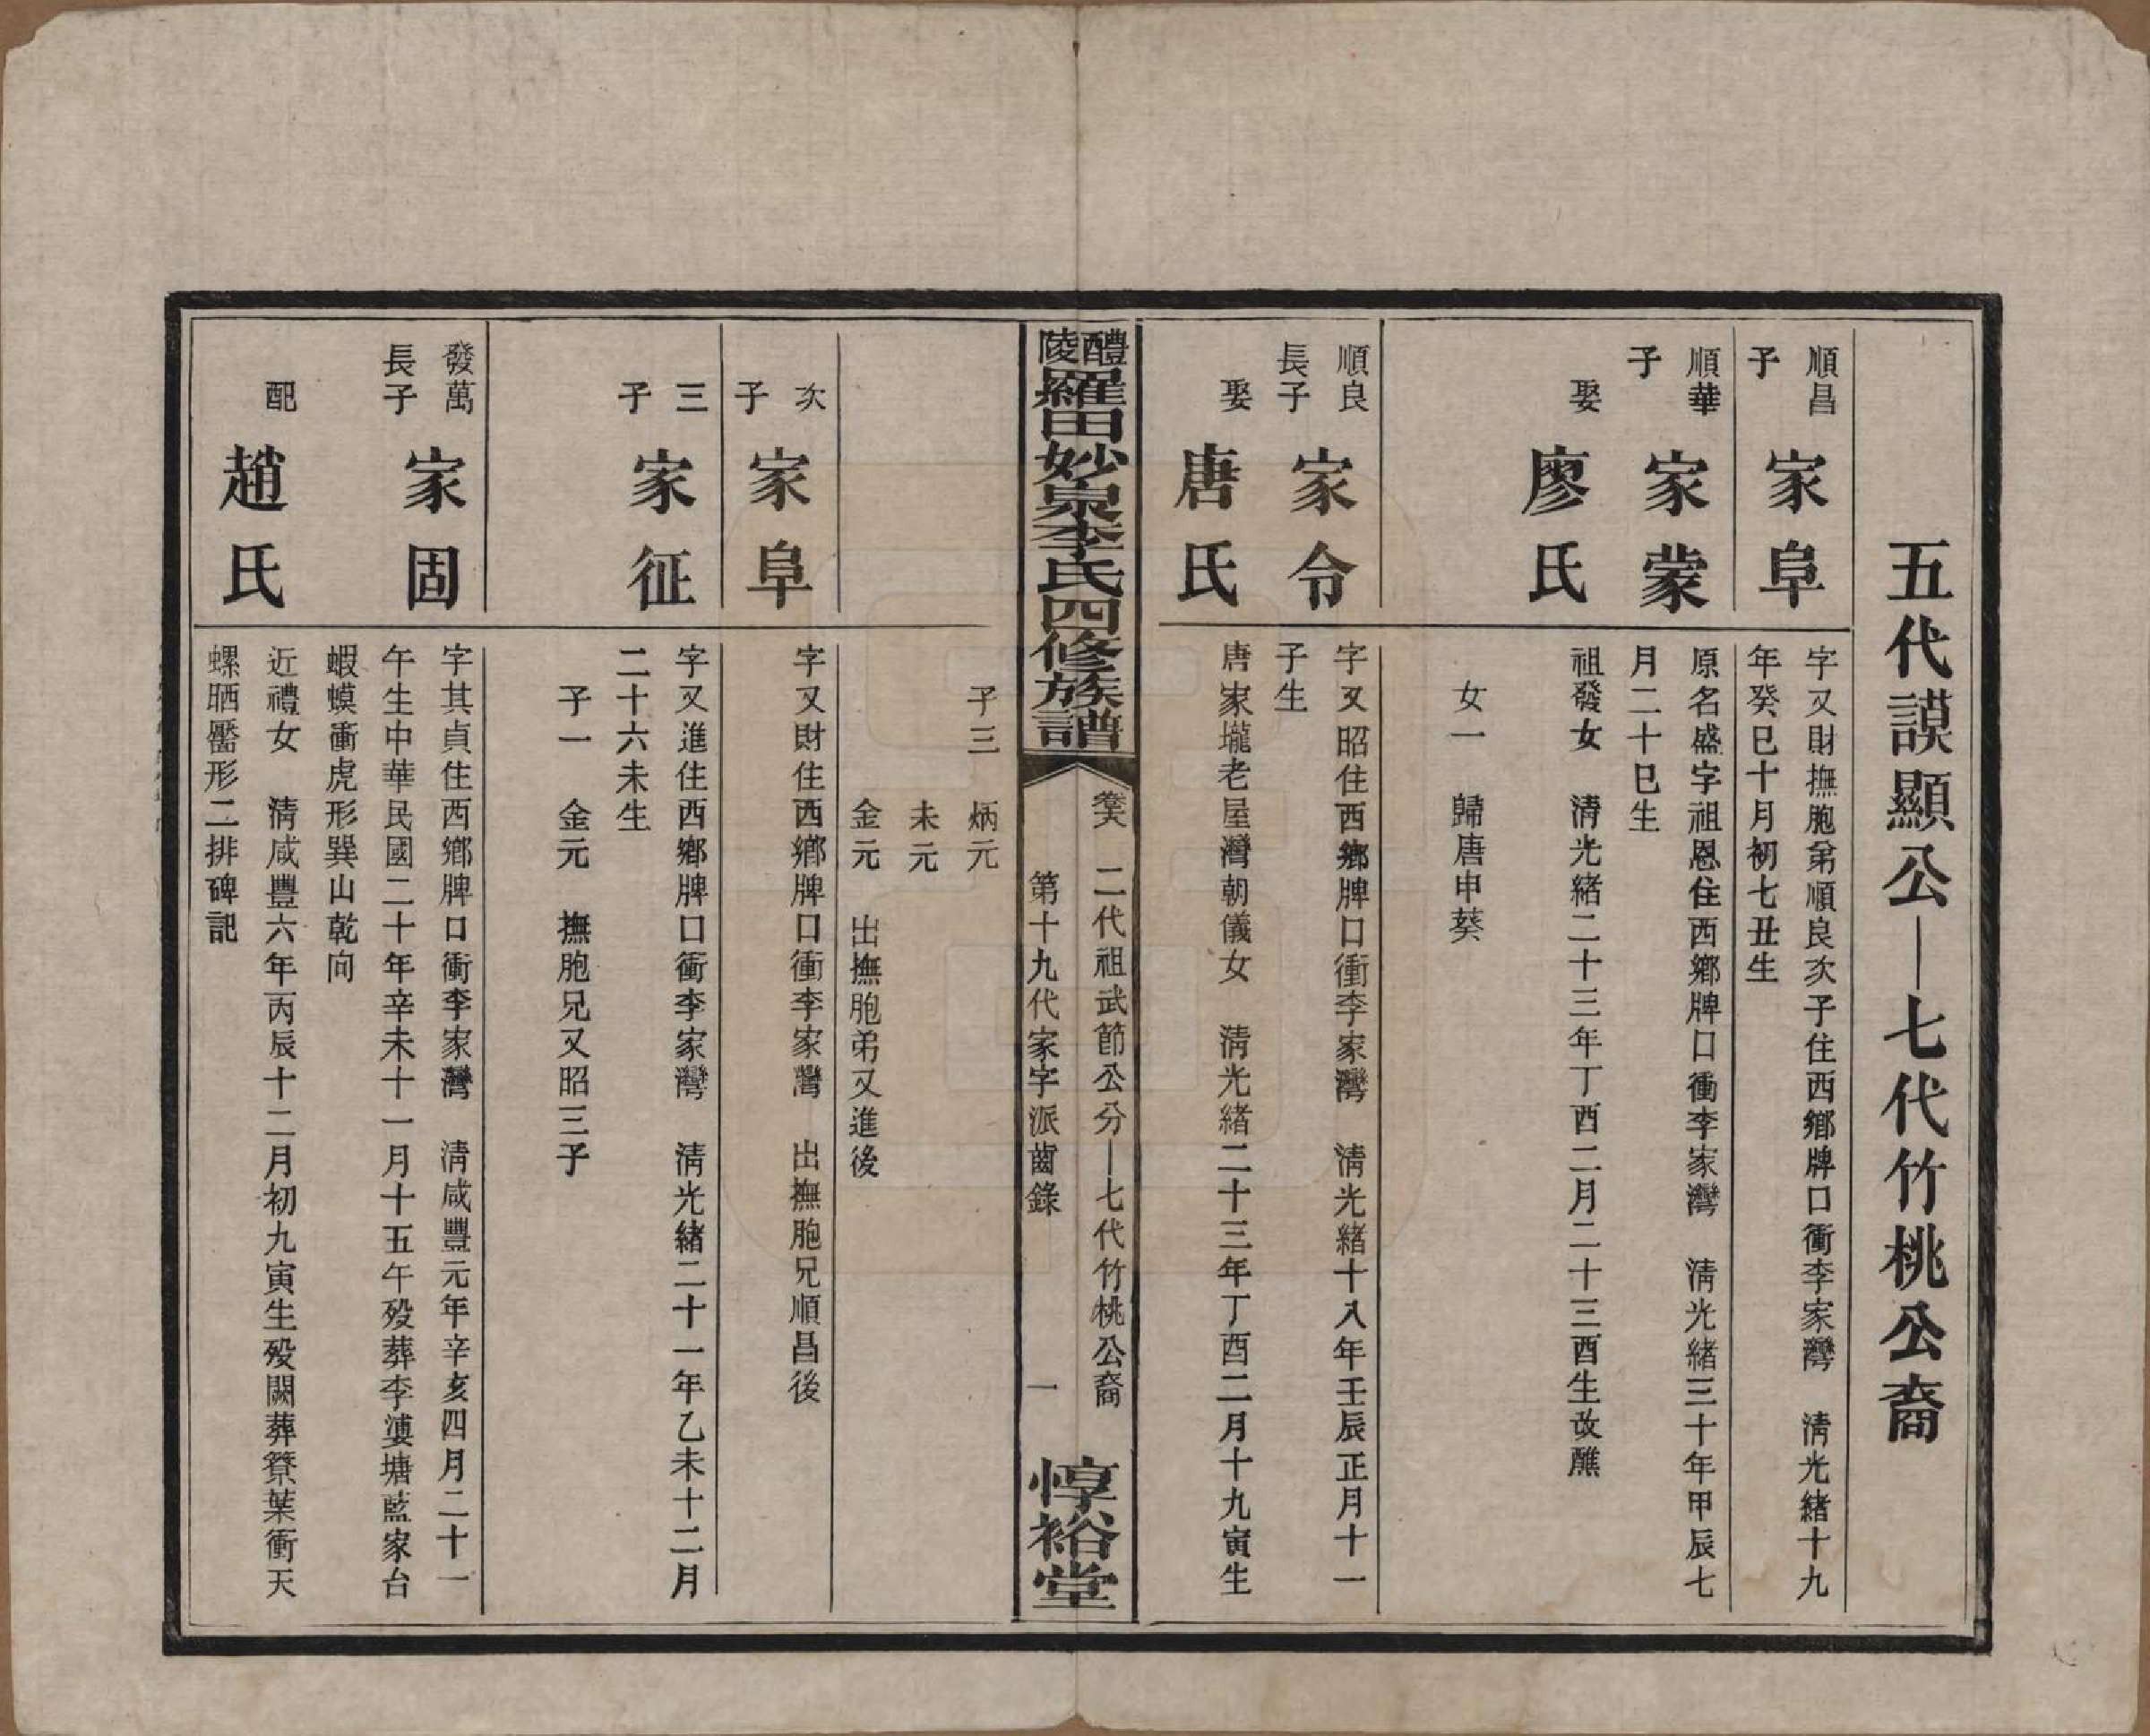 五代謨顯公—七代竹桃公裔
順昌
子
家阜
字又財撫胞弟順良次子住西鄉牌口衝李家灣　清光緒十九
年癸巳十月初七丑生
順華
子
家蒙
原名盛字祖恩住西鄉牌口衝李家灣　清光緒三十年甲辰七
月二十巳生
娶
廖氏
祖發女　清光緒二十三年丁酉二月二十三酉生改醮
女一　歸唐申葵
順良
長子
家令
字又昭住西鄉牌口衝李家灣　清光緒十八年壬辰正月十一
子生
娶
唐氏
唐家壠老屋灣朝儀女　清光緒二十三年丁酉二月十九寅生
醴陵羅田妙泉李氏四修族譜
卷六　二代祖武節公分—七代竹桃公裔
第十九代家字派齒錄　一
惇裕堂
子三　炳元
未元
金元　出撫胞弟又進後
次
子
家阜
字又財住西鄉牌口衝李家灣　出撫胞兄順昌後
三
子
家征
字又進住西鄉牌口衝李家灣　清光緒二十一年乙未十二月
二十六未生
子一　金元　撫胞兄又昭三子
發萬
長子
家固
字其貞住西鄉牌口衝李家灣　清咸豐元年辛亥四月二十一
午生中華民國二十年辛未十一月十五午歿葬李婆塘藍家台
蝦蟆衝虎形巽山乾向
配
趙氏
近禮女　清咸豐六年丙辰十二月初九寅生歿闕葬簝葉衝天
螺晒靨形二排碑記